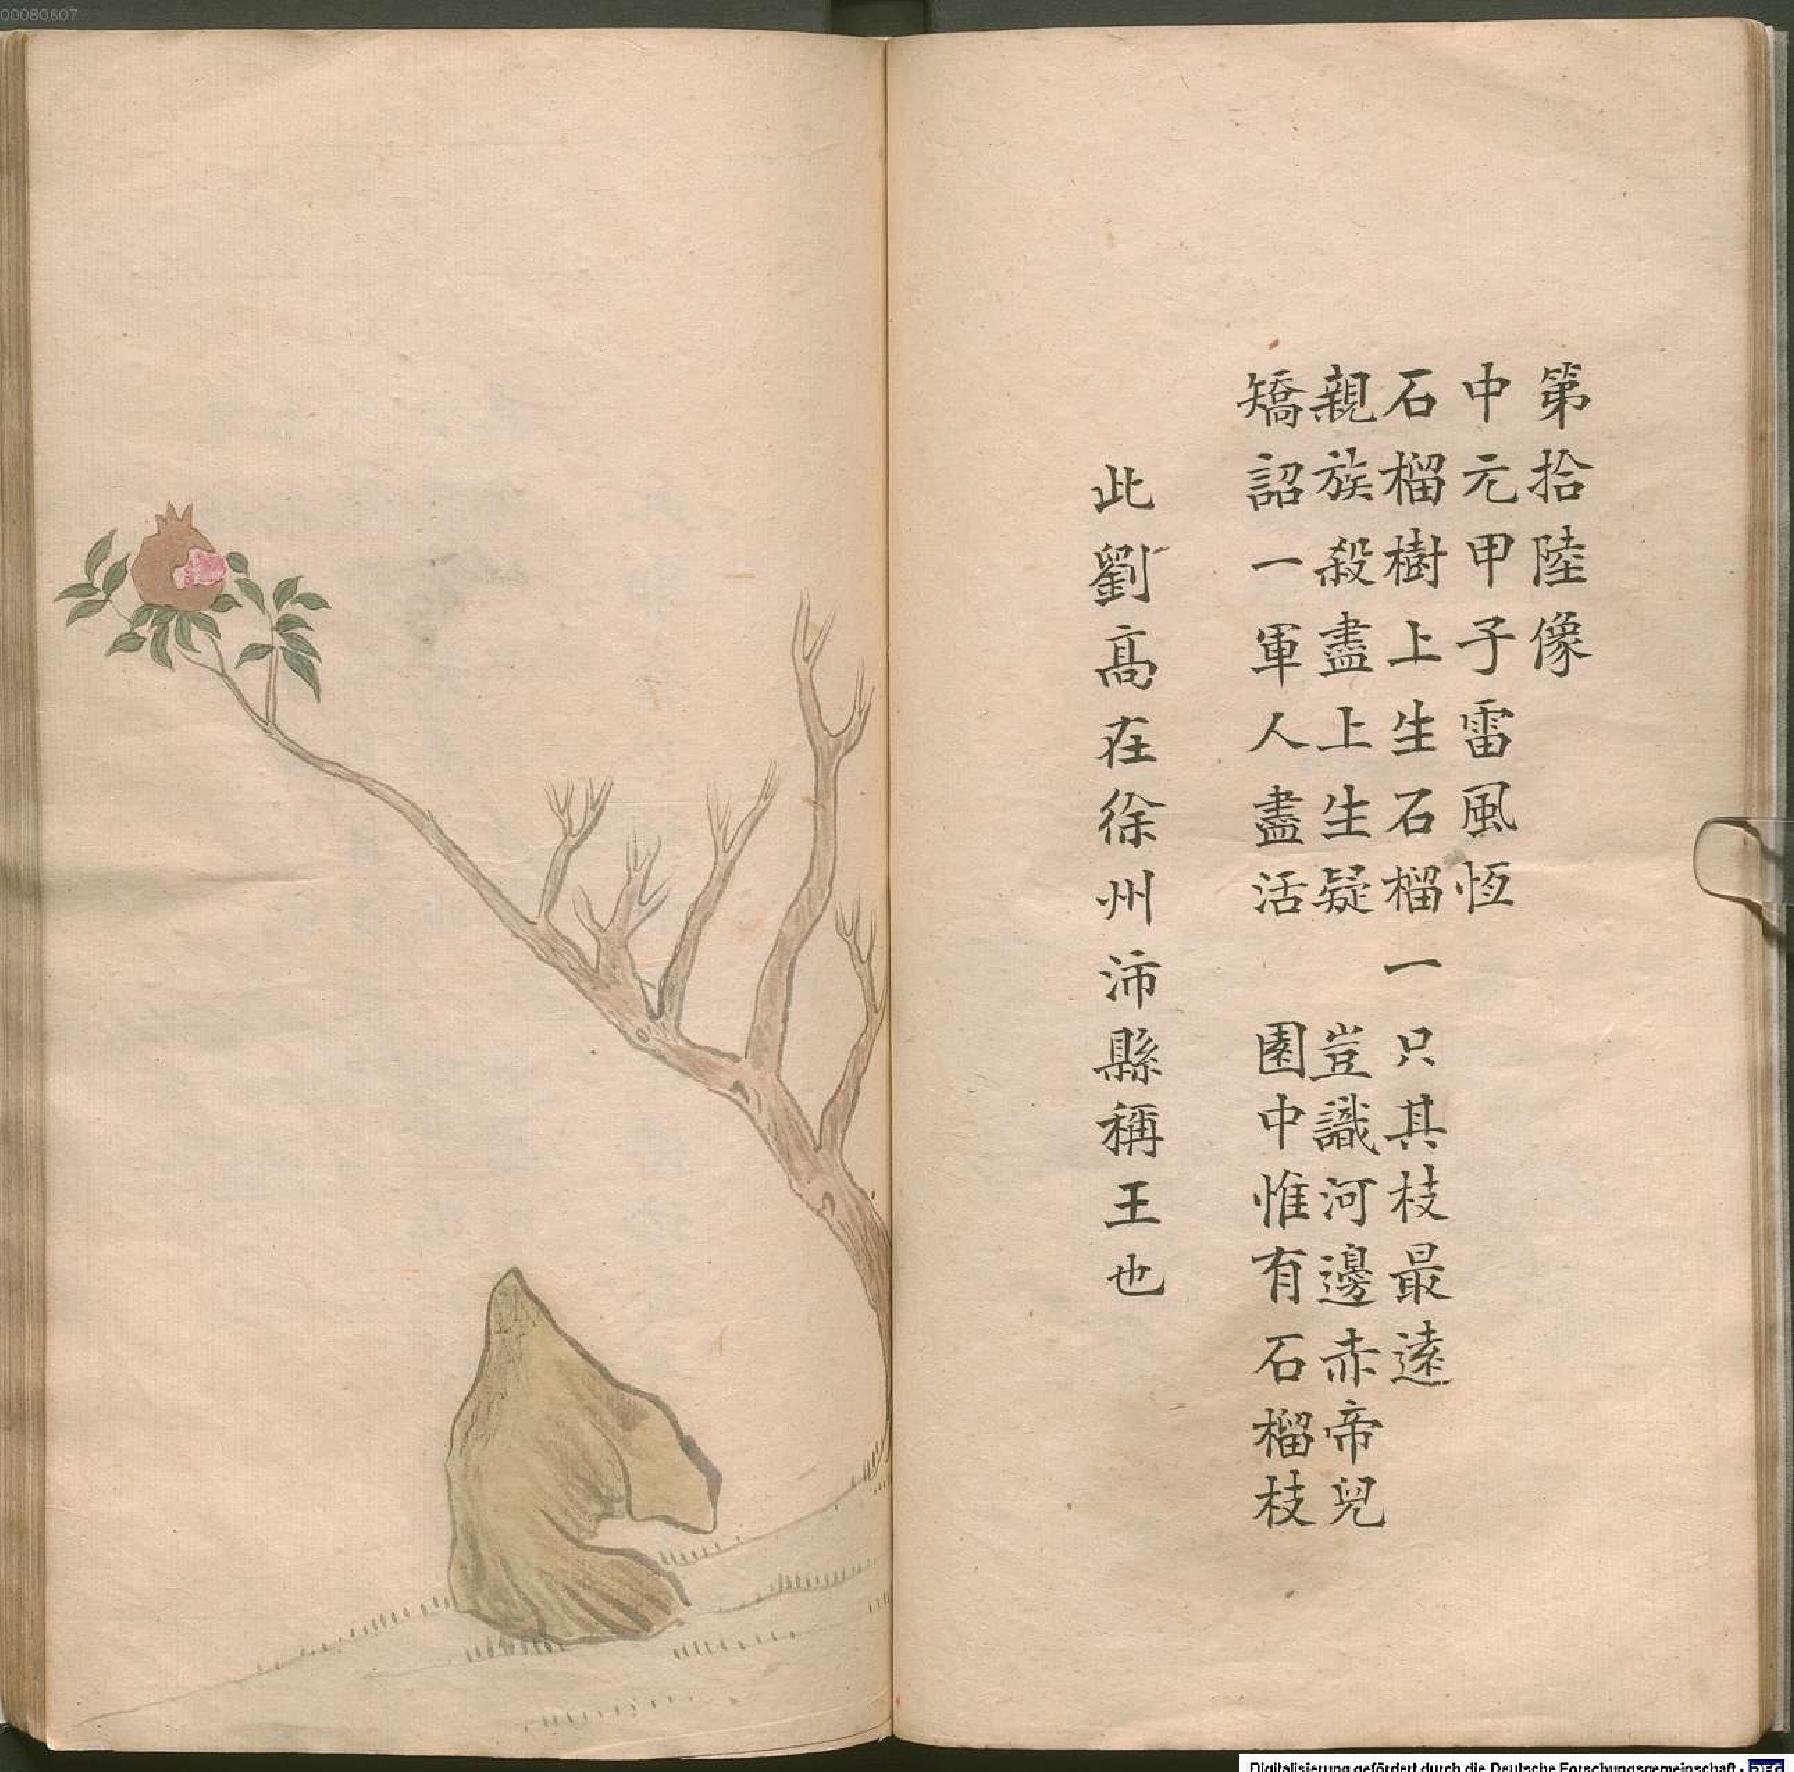 第拾陸像
中元甲子雷風恆
石榴樹上生石榴一只其枝最遠
親族殺盡上生疑 豈識河邊赤帝兒
矯詔一軍人盡活 園中惟有石榴枝
此劉髙在徐州沛縣稱王也
00080807
Digitalisierung gefördert durch die Deutsche Forschungsgemeinschaft - DFG